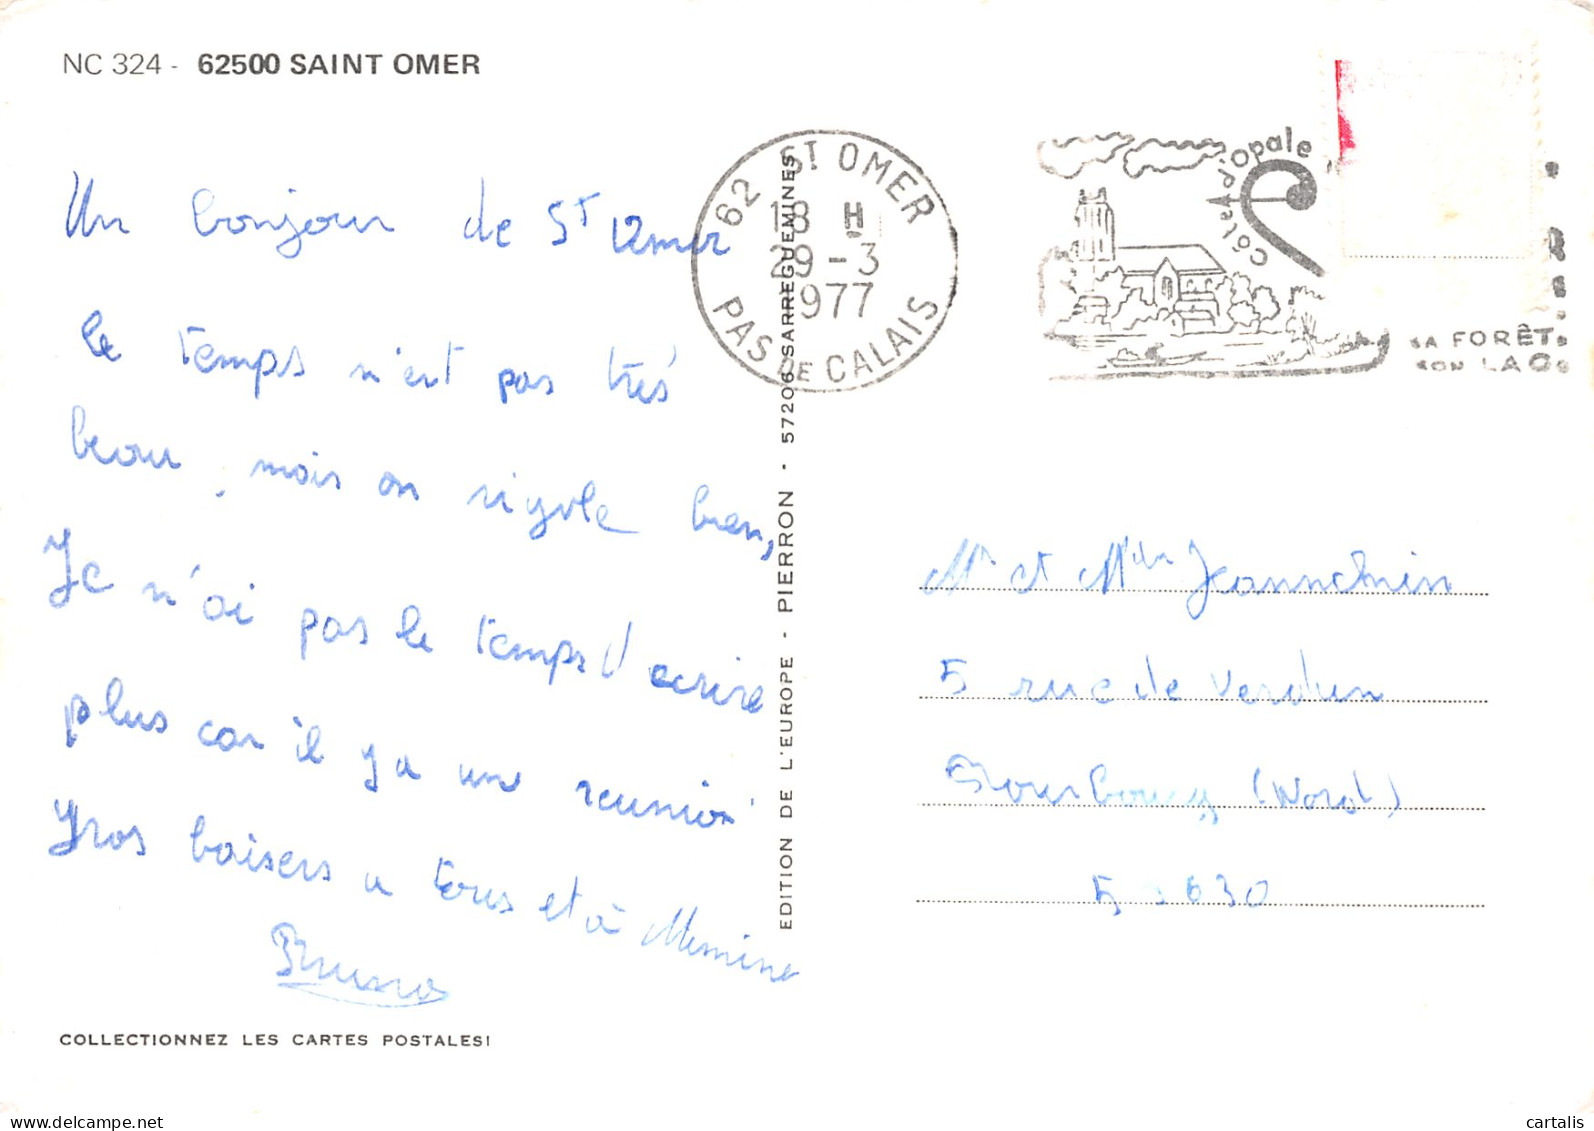 NC 324 - 62500 SAINT OMER
62 ST OMER
18 H
29-3
1977
PAS DE CALAIS
Côte d'Opale
SA FORÊT
SON LAC
Un bonjour de St Omer
le temps n'est pas très
beau, mais on rigole bien,
Je n'ai pas le temps d'ecrire
plus car il y a une reunion
Gros baisers a tous et à Memine
Bruno
EDITION DE L'EUROPE - PIERRON - 57206 SARREGUEMINES
Mr et Mme
5 rue de Verdun
Bourbourg (Nord)
5 630
COLLECTIONNEZ LES CARTES POSTALES!
cartalis